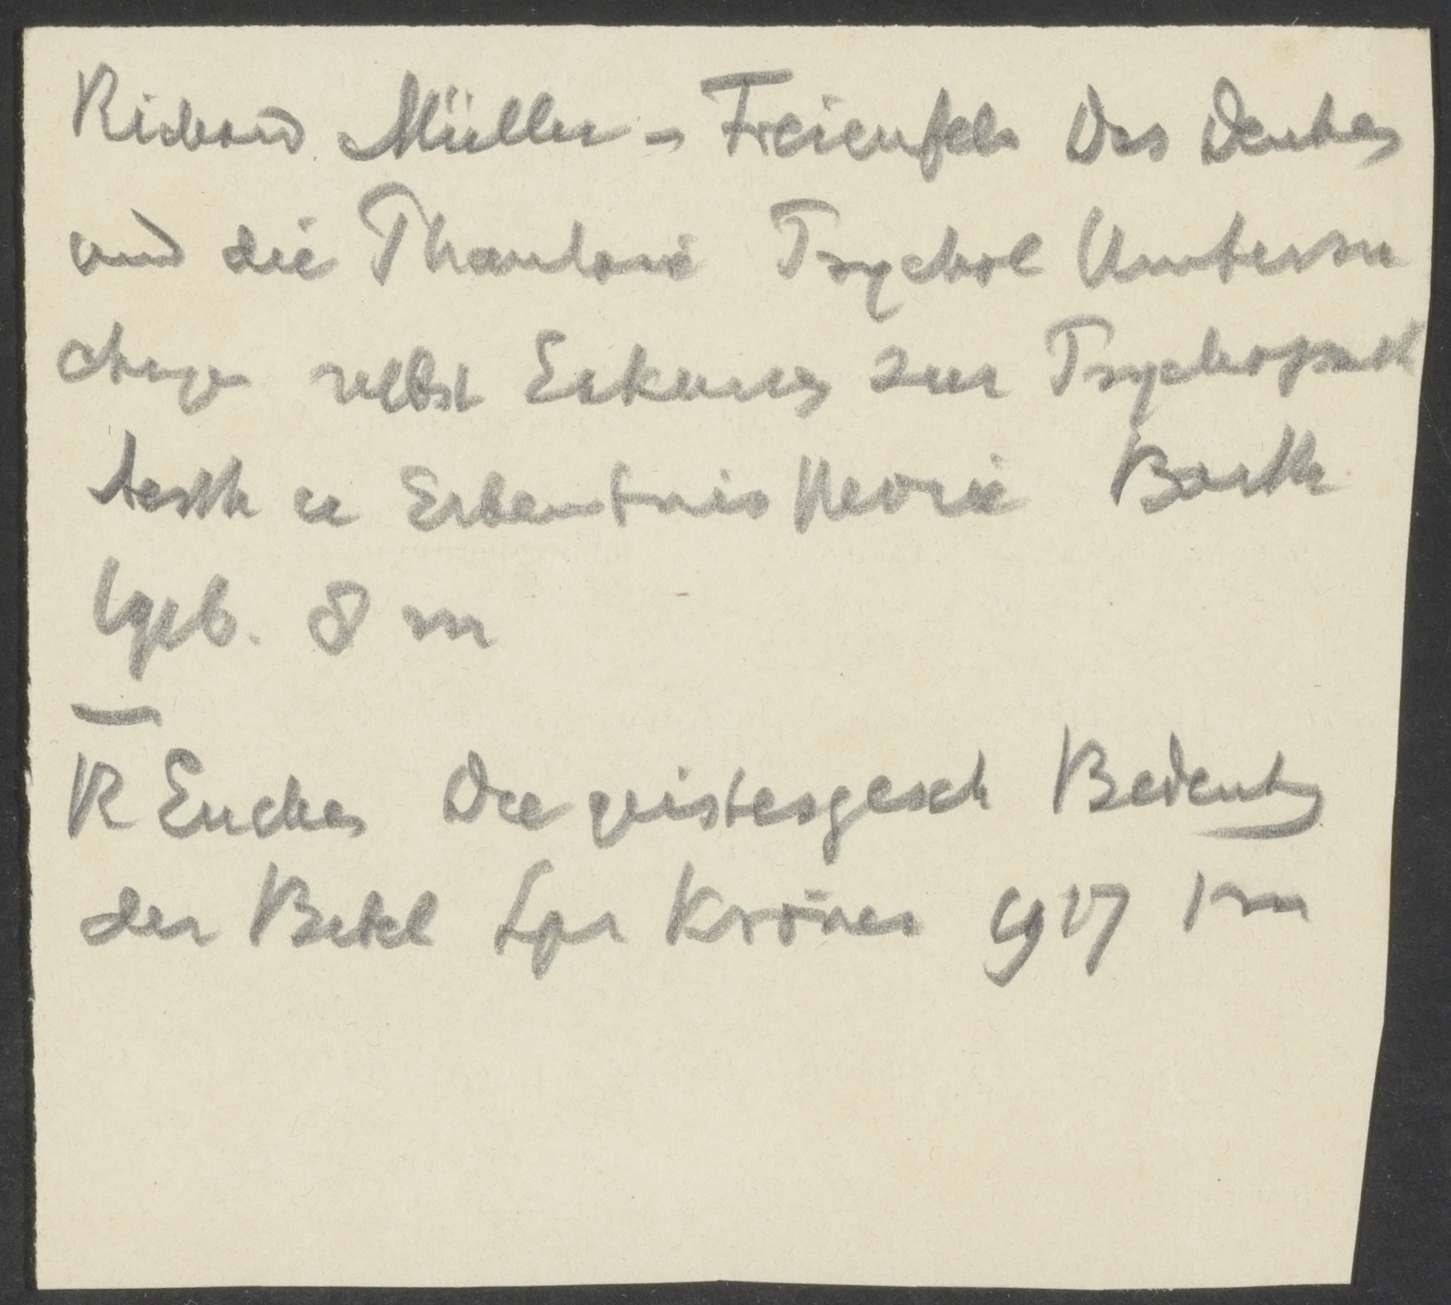 Richard Müller-Freienfels Das Denken
und die Phantasie Psychol Untersu
chngn nebst Exkursen zur Psychopath
Aesth u Erkenntnistheorie Barth
geb. 8 m
R Eucken Die geistesgesch Bedeutg
der Bibel Lpz Kröner 1917 1 m